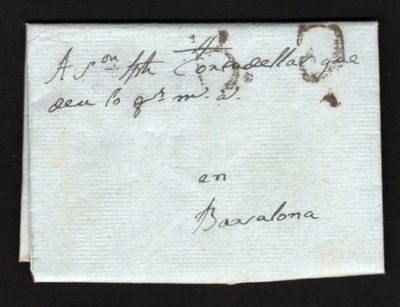 A Sor Jph Torradellas que
deu lo gr. m. a.
en
Barsalona